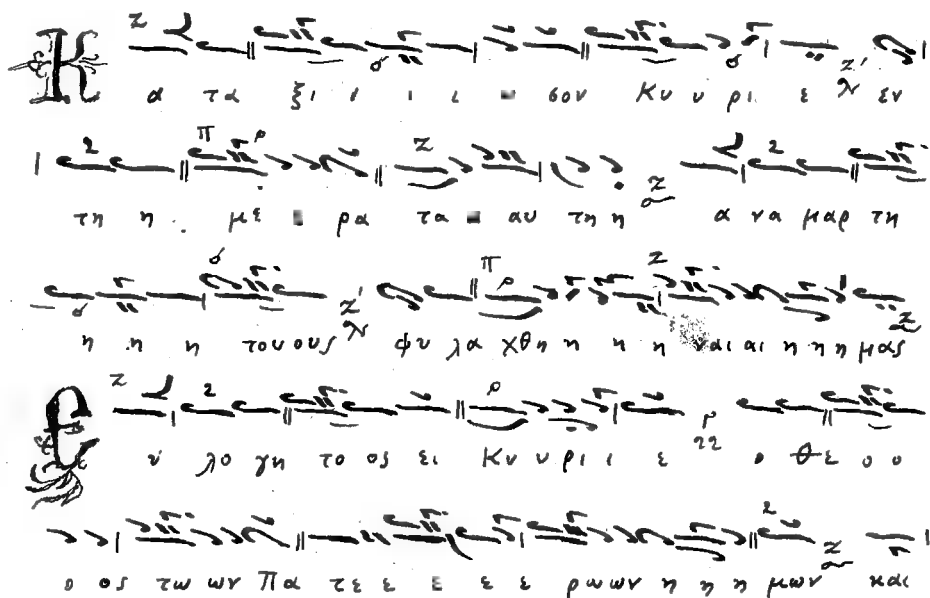 Κ α τα ξι ι ι ι σον Κυ υ ρι ε εν
τη η με ρα τα αυ τη η α να μαρ τη
η η η τουους φυ λα χθη η η η ναιαιαι η η η μας
Ε υ λο γη το ος ει Κυ υρι ι ε ο θε ο ο
ο ος τω ων Πα τε ε ε ε ε ρωων η η η μων και